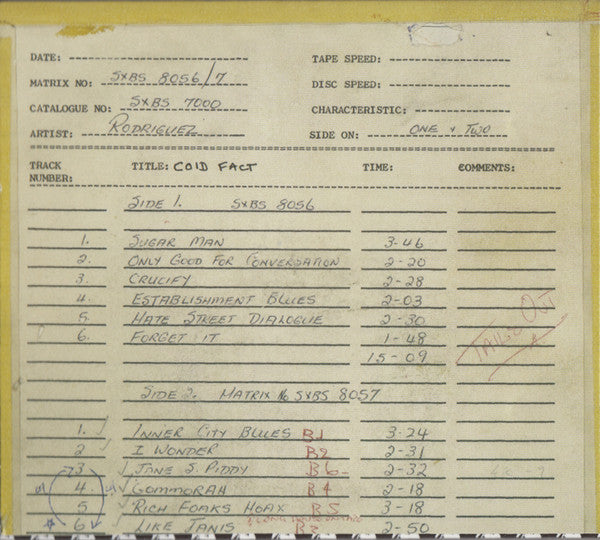 DATE: TAPE SPEED:
MATRIX NO: SXBS 8056/7 DISC SPEED:
CATALOGUE NO: SXBS 7000 CHARACTERISTIC:
ARTIST: RODRIGUEZ SIDE ON: ONE & TWO
TRACK NUMBER: TITLE: COLD FACT TIME: COMMENTS:
SIDE 1. SXBS 8056
1. SUGAR MAN 3-46
2. ONLY GOOD FOR CONVERSATION 2-20
3. CRUCIFY 2-28
4. ESTABLISHMENT BLUES 2-03
5. HATE STREET DIALOGUE 2-30
6. FORGET IT 1-48
15-09
TAILS OUT
SIDE 2. MATRIX No SXBS 8057
1. INNER CITY BLUES B1 3-24
2 I WONDER B2 2-31
3 JANE S. PIDDY B6 2-32
4. GOMMORAH B4 2-18
5 RICH FOAKS HOAX B5 3-18
6 LIKE JANIS B3 2-50